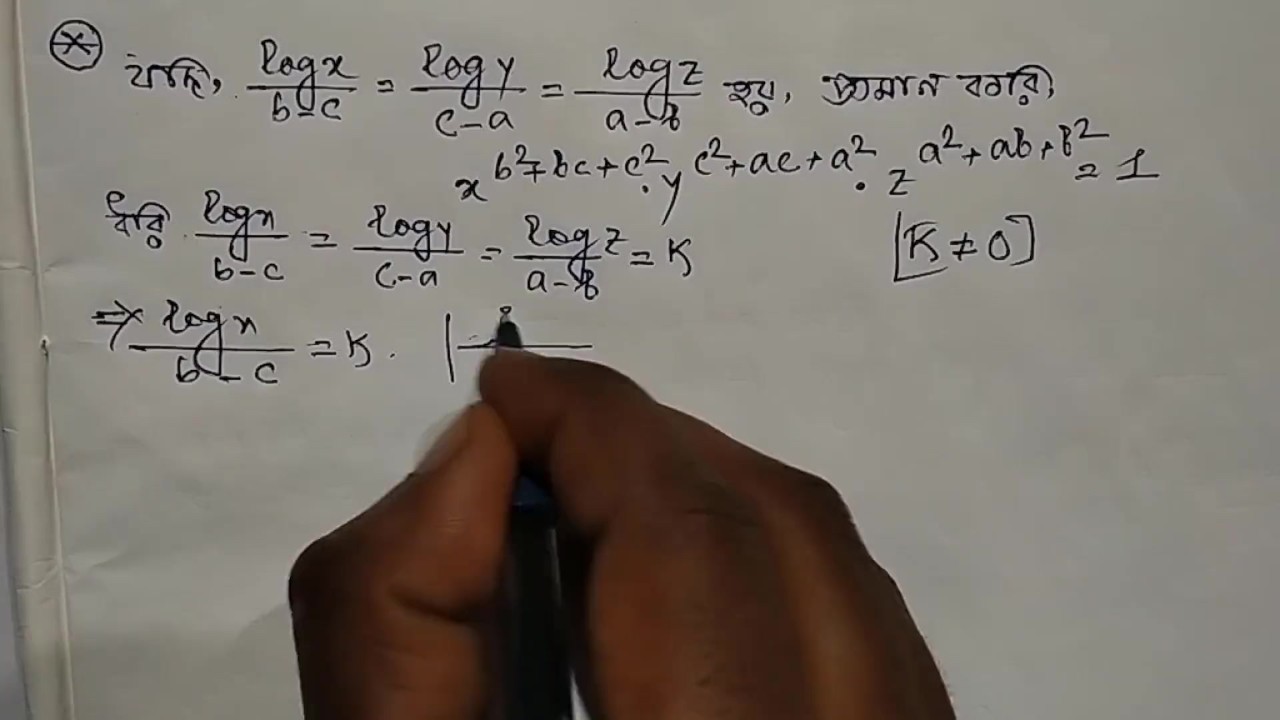 যদি, log x / b-c = log y / c-a = log z / a-b হয়, প্রমান করি,
x^(b²+bc+c²) . y^(c²+ac+a²) . z^(a²+ab+b²) = 1
ধরি log x / b-c = log y / c-a = log z / a-b = K [K ≠ 0]
⇒ log x / b-c = K . |